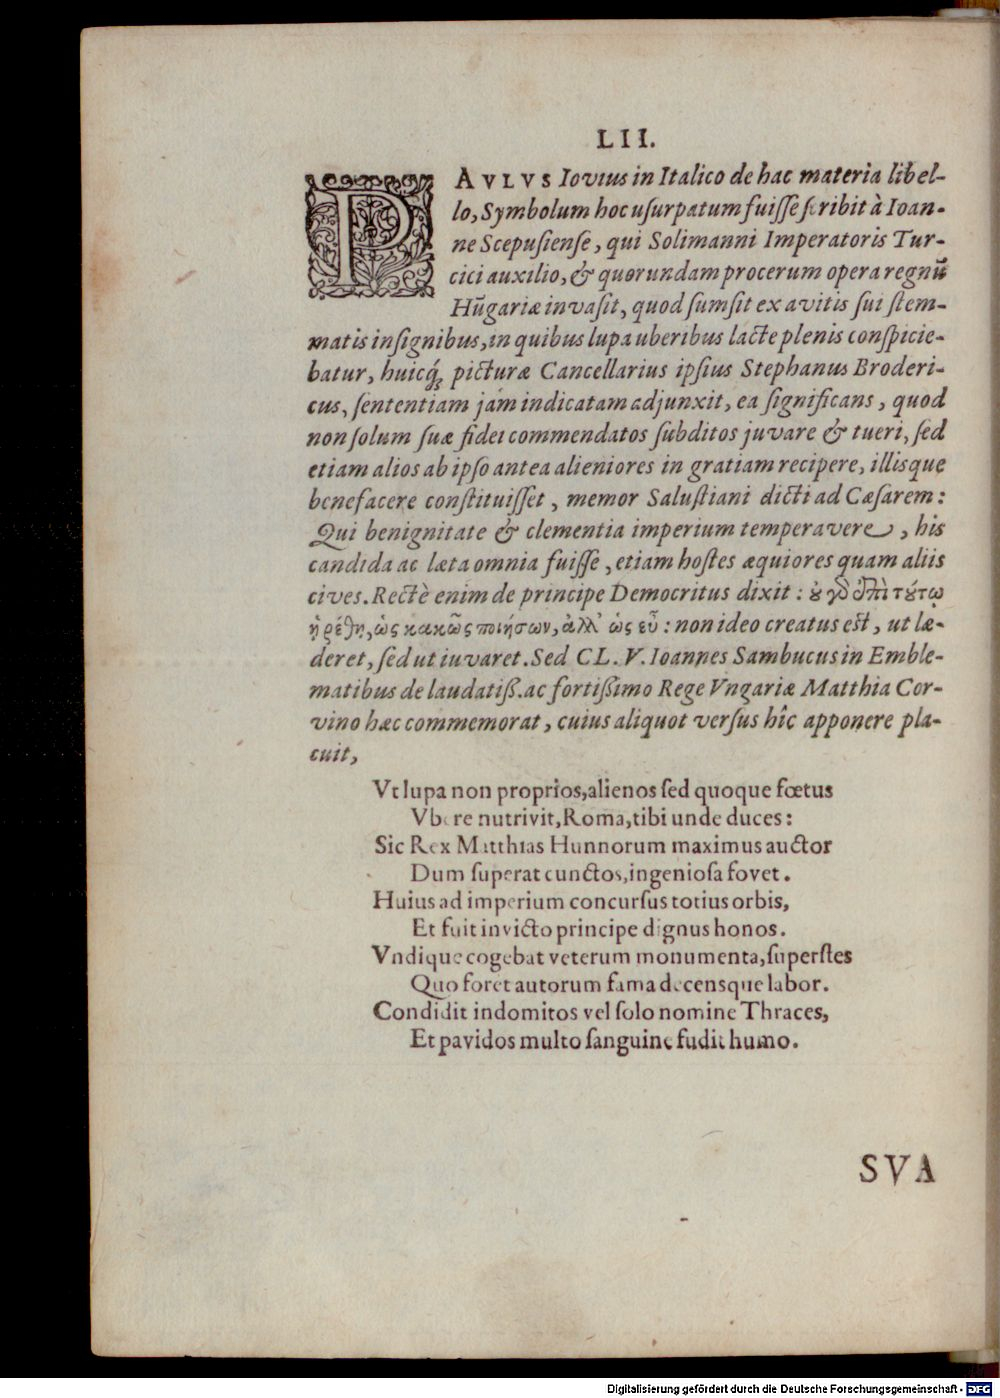 LII.
PAVLVS Iovius in Italico de hac materia libel-
lo, Symbolum hoc uſurpatum fuiſſe ſcribit à Ioan-
ne Scepuſienſe, qui Solimanni Imperatoris Tur-
cici auxilio, & quorundam procerum opera regnũ
Hũgariæ invaſit, quod ſumſit ex avitis ſui ſtem-
matis inſignibus, in quibus lupa uberibus lacte plenis conſpicie-
batur, huicq́; picturæ Cancellarius ipſius Stephanus Broderi-
cus, ſententiam jam indicatam adjunxit, ea ſignificans, quod
non ſolum ſuæ fidei commendatos ſubditos juvare & tueri, ſed
etiam alios ab ipſo antea alieniores in gratiam recipere, illisque
benefacere conſtituiſſet, memor Saluſtiani dicti ad Cæſarem:
Qui benignitate & clementia imperium temperavere, his
candida ac læta omnia fuiſſe, etiam hoſtes æquiores quam aliis
cives. Rectè enim de principe Democritus dixit: ȣ γὸ ἐπὶ τȣ́τῳ
ᾑρέθη, ὡς κακῶς ποιήσων, ἀλλ' ὡς εὖ: non ideo creatus eſt, ut læ-
deret, ſed ut iuvaret. Sed CL. V. Ioannes Sambucus in Emble-
matibus de laudatiß. ac fortißimo Rege Vngariæ Matthia Cor-
vino hæc commemorat, cuius aliquot verſus hîc apponere pla-
cuit,
Vt lupa non proprios, alienos ſed quoque fœtus
Vbere nutrivit, Roma, tibi unde duces:
Sic Rex Matthias Hunnorum maximus auctor
Dum ſuperat cunctos, ingenioſa fovet.
Huius ad imperium concurſus totius orbis,
Et fuit invicto principe dignus honos.
Vndique cogebat veterum monumenta, ſuperſtes
Quo foret autorum fama decensque labor.
Condidit indomitos vel ſolo nomine Thraces,
Et pavidos multo ſanguine fudit humo.
SVA
Digitalisierung gefördert durch die Deutsche Forschungsgemeinschaft - DFG